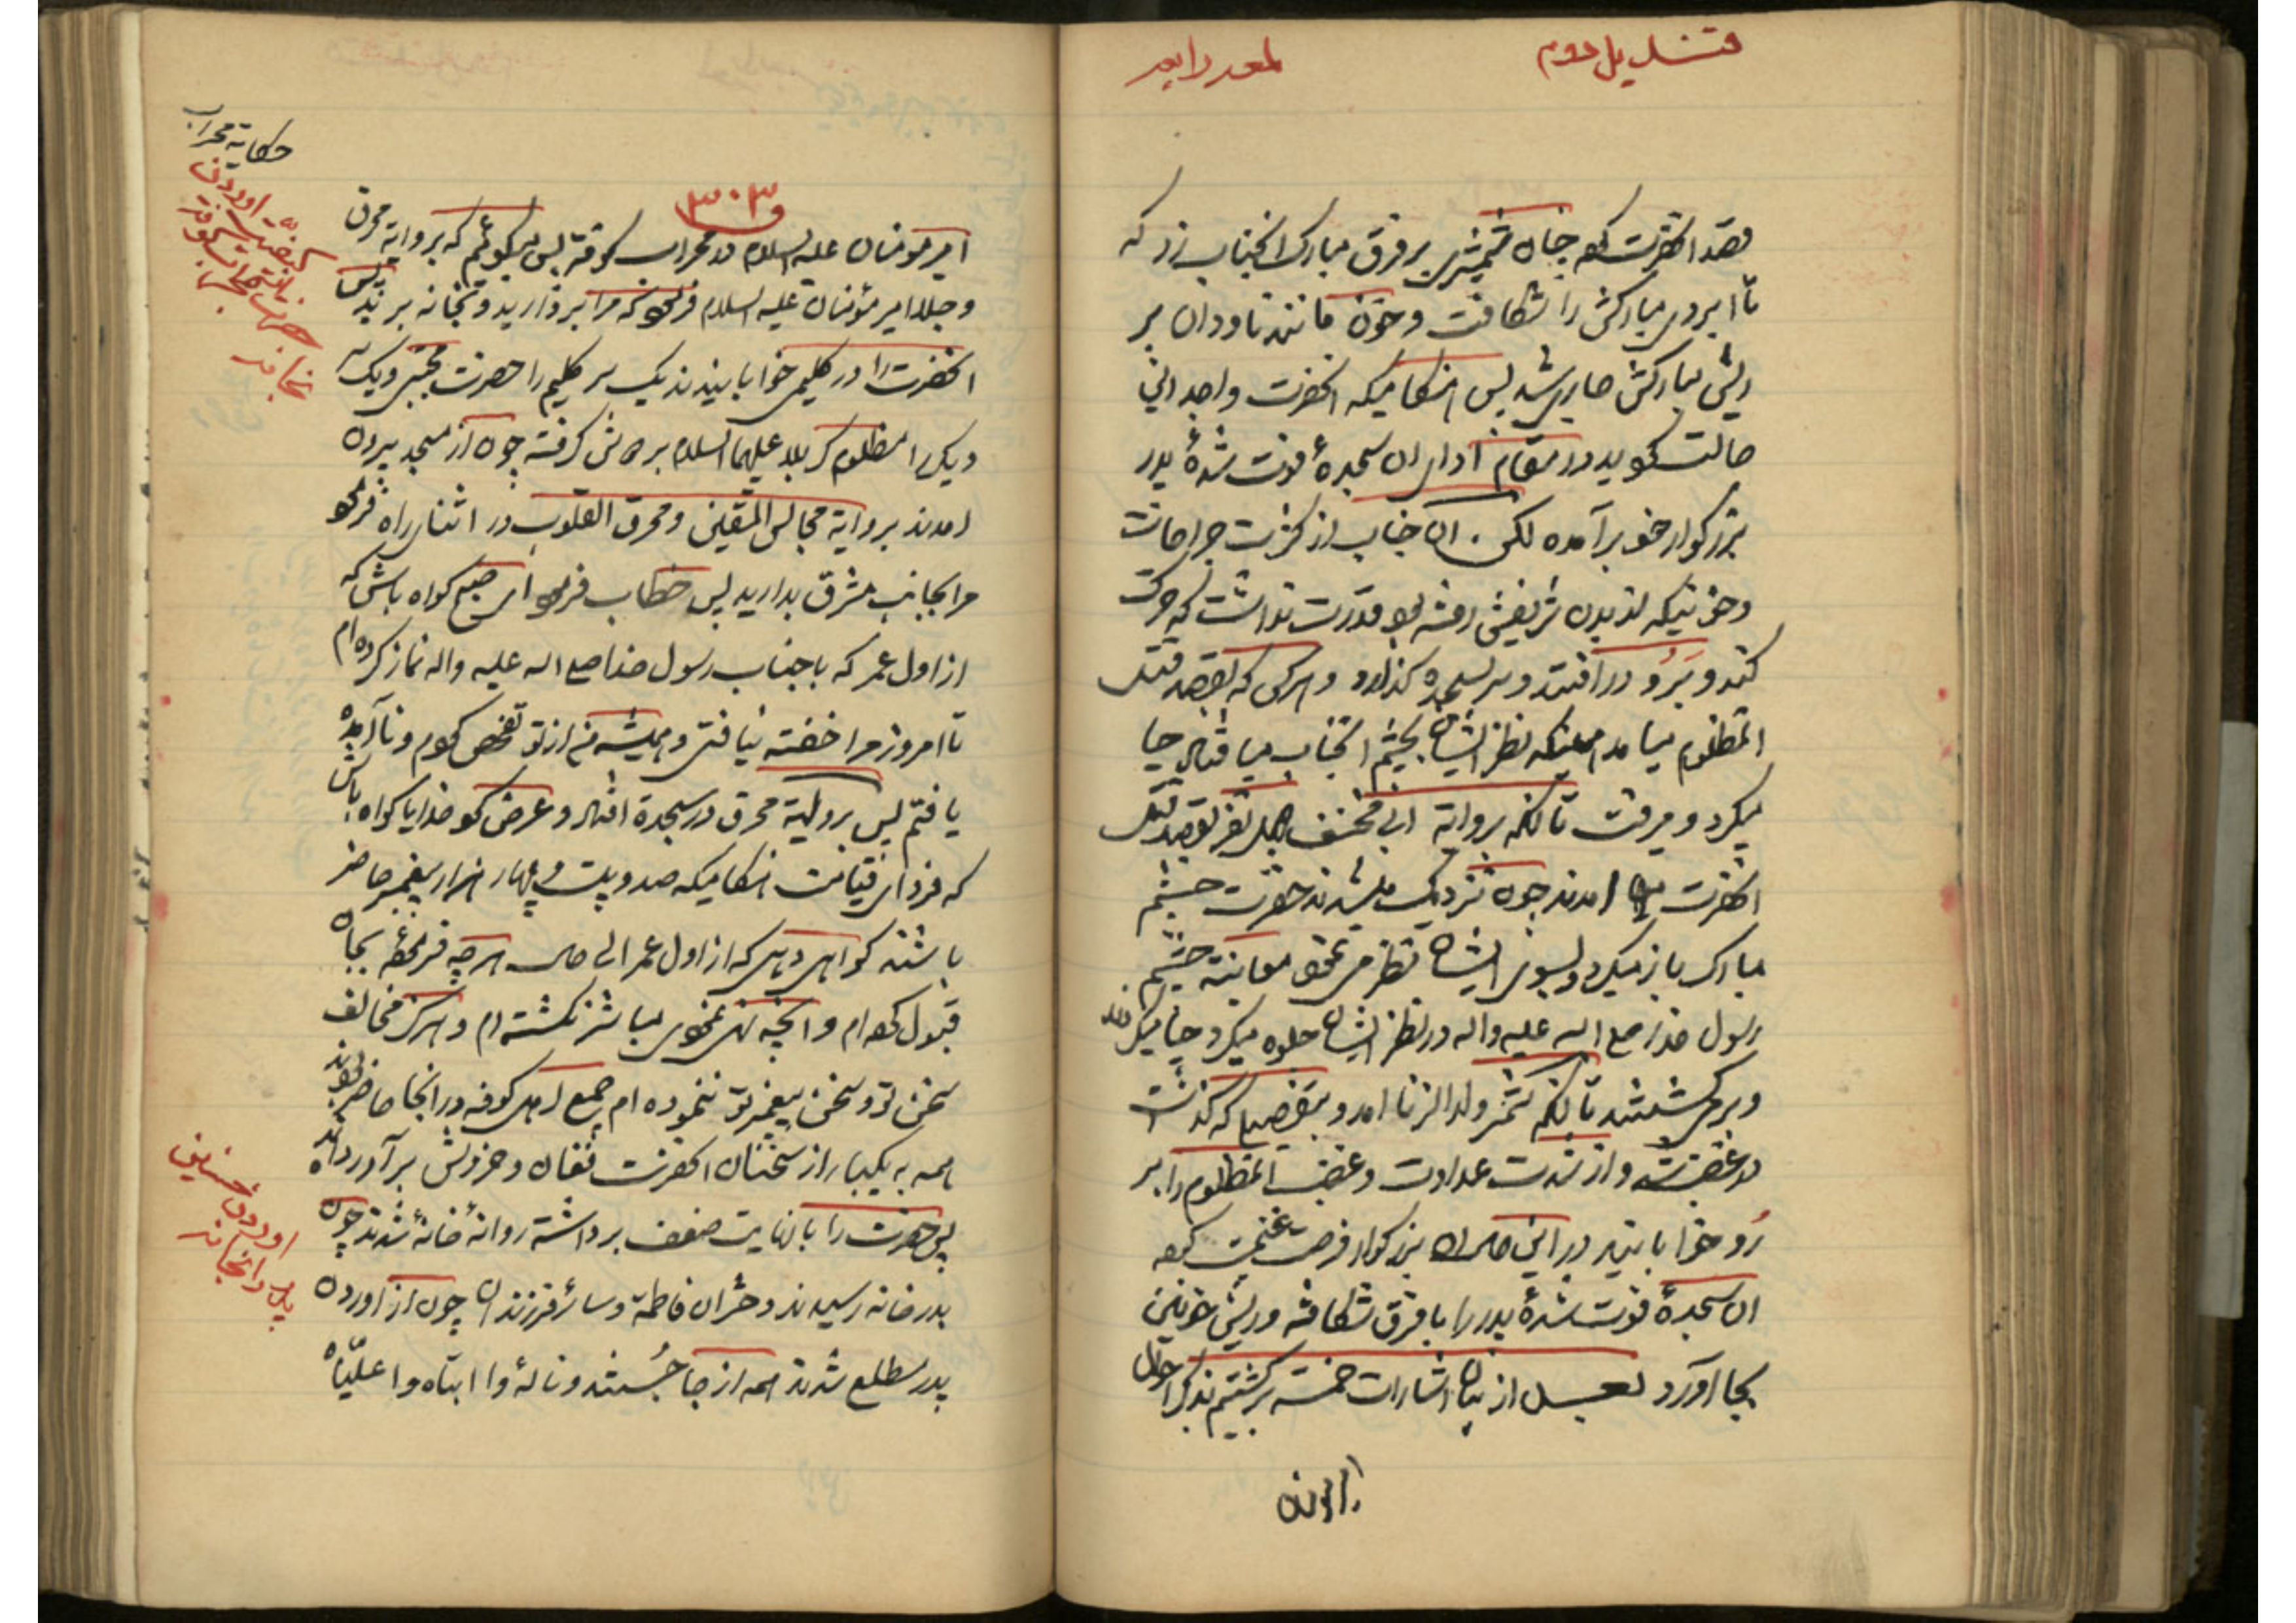 قندیل دوم
لمعه رابعه
قصد انحضرت کرد چنان شمشیری بر فرق مبارک انجناب زد که
تا ابروی مبارکش را شکافت و خون مانند ناودان بر
ریش مبارکش جاری شد پس هنگامیکه انحضرت را بدین
حالت دید در مقام ادای ان سجدهٔ فوت شدهٔ پدر
بزرگوار خود برآمده لکن ان جناب از کثرت جراحات
و خونیکه از بدن شریفش رفته بود قدرت نداشت که حرکت
کند و برو در افتد و سر بسجده گذارد و هرکس که بقصد قتل
انمظلوم میامد همینکه نظر ایشان بچشم انجناب میافتاد حیا
میکرد و میرفت تا انکه بروایة ابی مخنف چهل نفر بقصد قتل
انحضرت امدند چون نزدیک میشدند حضرت چشم
مبارک باز میکرد و بسوی ایشان نظر می نمود معاینه چشم
رسول خدا صلی الله علیه واله در نظر ایشان جلوه میکرد حیا میکردند
و بر می گشتند تا انکه شمر ولد الزنا امد و بتفصیلی که گذشت
در غضب شد و از شدت عداوت و غضب انمظلوم را بر
رُو خوابانید در این حال ان بزرگوار فرصت غنیمت کرده
ان سجدهٔ فوت شدهٔ پدر را با فرق شکافته و ریش خونین
بجا اورد بعد از بیان اشارات خمسه برگشتیم بذکر احوال
حکایة محراب
۳۰۳
امیرمؤمنان علیه السلام در محراب کوفه پس میگوئیم که بروایة محرق
و جلا امیر مؤمنان علیه السلام فرمود که مرا بردارید و بخانه برید پس
انحضرت را در گلیمی خوابانیدند یک سر گلیم را حضرت مجتبی و یک سر
دیگر را مظلوم کربلا علیهما السلام بر دوش گرفته چون از مسجد بیرون
امدند بروایة مجالس المتقین و محرق القلوب در اثنای راه فرمود
مرا بجانب مشرق بدارید پس خطاب فرمود ای صبح گواه باش که
از اول عمر که با جناب رسول خدا صلی الله علیه واله نماز کرده ام
تا امروز مرا خفته نیافتی و همیشه من از تو تفحص کردم و ناآمده
یافتم پس بروایة محرق در سجده افتاد و عرض کرد خدایا گواه باش
که فردای قیامت هنگامیکه صد و بیست و چهار هزار پیغمبر حاضر
باشند گواهی دهی که از اول عمر الی حال هرچه فرموده بجان
قبول کرده ام و انچه نهی نمودی مباشر نگشته ام و هرگز مخالف
سخن تو و سخن پیغمبر تو ننموده ام جمیع اهل کوفه در انجا حاضر بودند
همه به یکبار از سخنان انحضرت فغان و خروش برآوردند
پس حضرت را با نهایت ضعف برداشته روانهٔ خانه شدند چون
بدر خانه رسیدند دختران فاطمه و سائر فرزندان چون از اوردن
پدر مطلع شدند همه از جا جُستند و نالهٔ وا ابتاه وا علیّاه
اوردن حسنین
پدر را بخانه